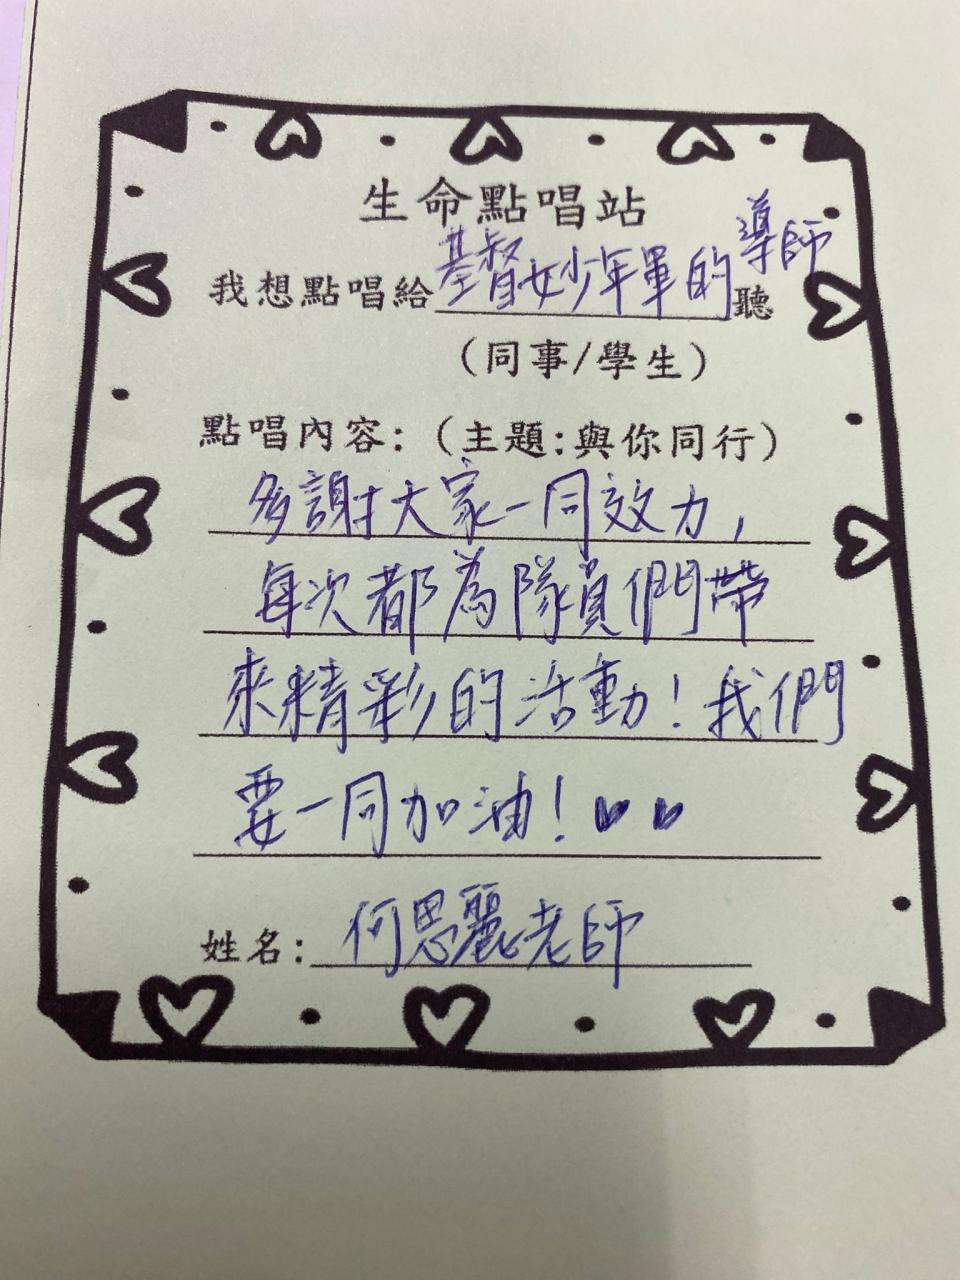 生命點唱站
我想點唱給基督女少年軍的導師聽
(同事/學生)
點唱內容:(主題:與你同行)
多謝大家一同效力,
每次都為隊員們帶
來精彩的活動!我們
要一同加油!♥♥
姓名:何思麗老師